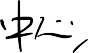 中心，